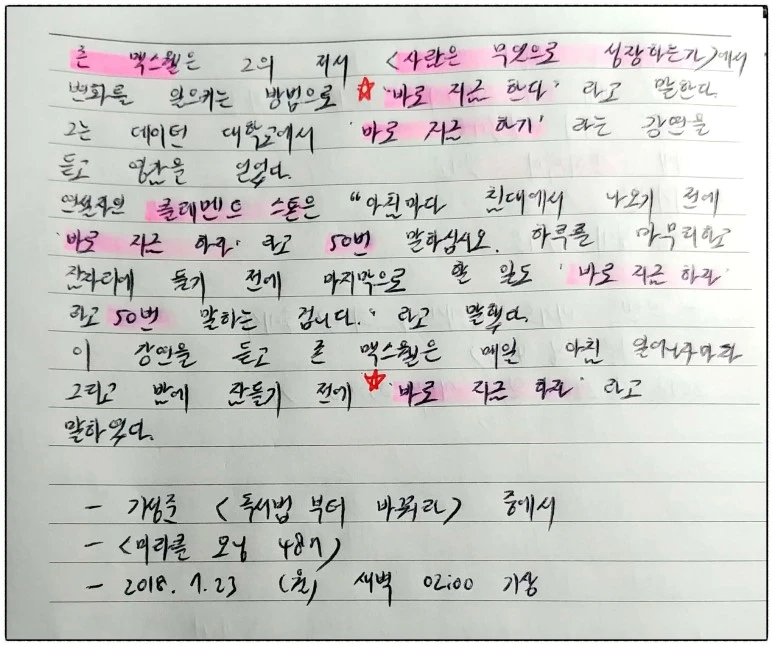 존 맥스웰은 그의 저서 <사람은 무엇으로 성장하는가>에서
변화를 일으키는 방법으로 ☆ '바로 지금 한다' 라고 말한다.
그는 데이턴 대학교에서 '바로 지금 하기' 라는 강연을
듣고 영감을 얻었다.
연설자인 클레멘트 스톤은 "아침마다 침대에서 나오기 전에
'바로 지금 하라' 라고 50번 말하십시오. 하루를 마무리하고
잠자리에 들기 전에 마지막으로 할 일도 '바로 지금 하라'
라고 50번 말하는 겁니다." 라고 말했다.
이 강연을 듣고 존 맥스웰은 매일 아침 일어나자마자
그리고 밤에 잠들기 전에 ☆ '바로 지금 하라' 라고
말하였다.
- 기성준 <독서법 부터 바꿔라> 중에서
- <미라클 모닝 48기>
- 2018. 7. 23 (월) 새벽 02:00 기상